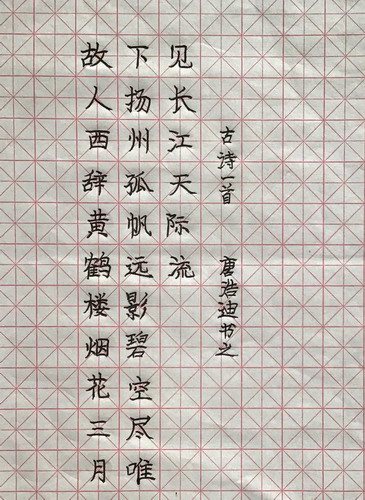 故人西辞黄鹤楼烟花三月
下扬州孤帆远影碧空尽唯
见长江天际流
古诗一首 唐浩迪书之